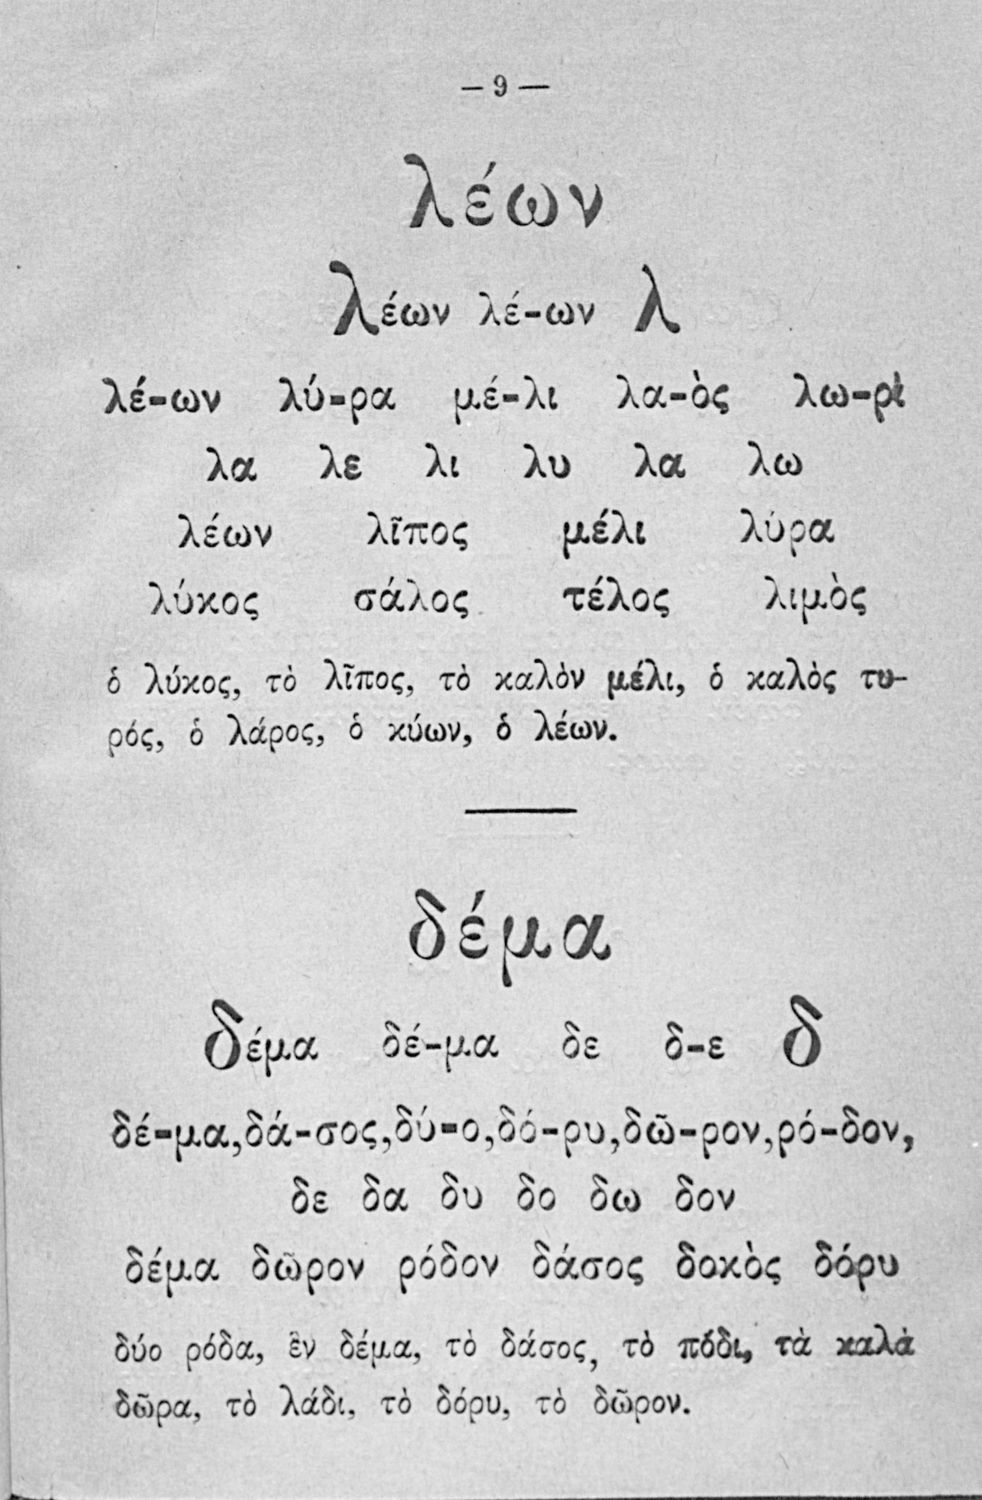 — 9 —
λέων
λέων λέ-ων λ
λέ-ων λύ-ρα μέ-λι λα-ὸς λω-ρὶ
λα λε λι λυ λα λω
λέων λῖπος μέλι λύρα
λύκος σάλος τέλος λιμὸς
ὁ λύκος, τὸ λῖπος, τὸ καλὸν μέλι, ὁ καλὸς τυ-
ρός, ὁ λάρος, ὁ κύων, ὁ λέων.
δέμα
δέμα δέ-μα δε δ-ε δ
δέ-μα, δά-σος, δύ-ο, δό-ρυ, δῶ-ρον, ρό-δον,
δε δα δυ δο δω δον
δέμα δῶρον ρόδον δάσος δοκὸς δόρυ
δύο ρόδα, ἓν δέμα, τὸ δάσος, τὸ πόδι, τὰ καλὰ
δῶρα, τὸ λάδι, τὸ δόρυ, τὸ δῶρον.